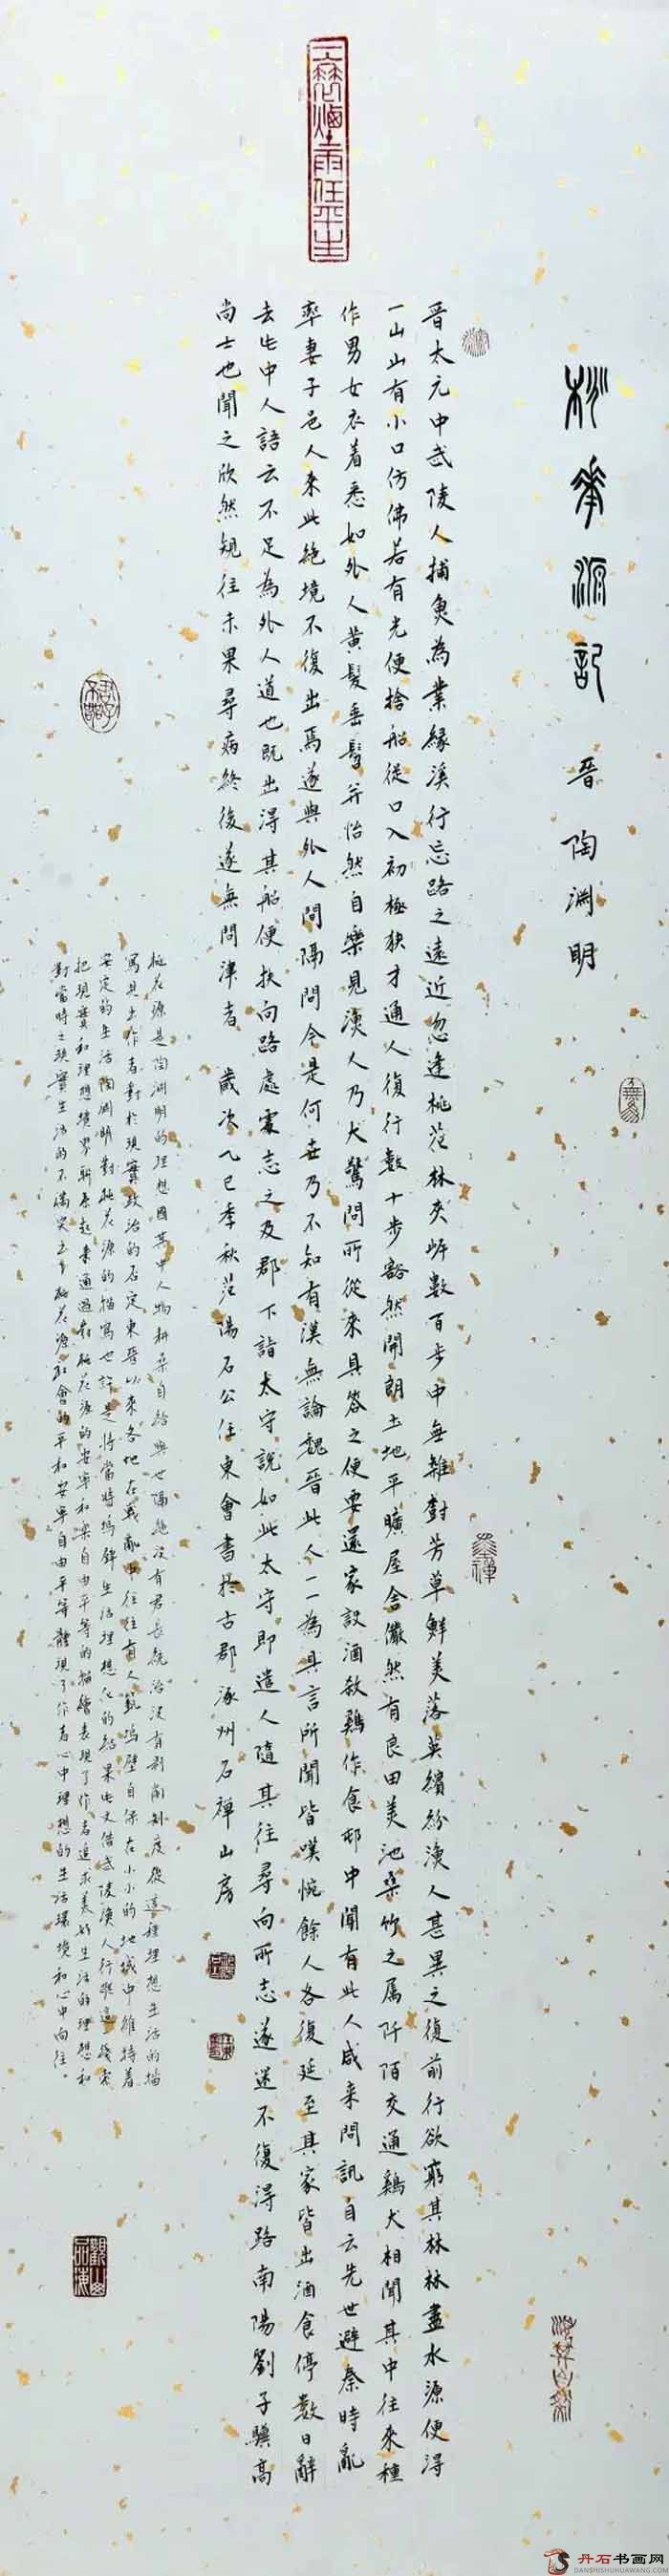 桃花源記 晉 陶淵明
晉太元中武陵人捕魚為業緣溪行忘路之遠近忽逢桃花林夾岸數百步中無雜樹芳草鮮美落英繽紛漁人甚異之復前行欲窮其林林盡水源便得
一山山有小口仿佛若有光便捨船從口入初極狹才通人復行數十步豁然開朗土地平曠屋舍儼然有良田美池桑竹之屬阡陌交通鷄犬相聞其中往來種
作男女衣着悉如外人黃髮垂髫并怡然自樂見漁人乃大驚問所從來具答之便要還家設酒殺鷄作食邨中聞有此人咸来問訊自云先世避秦時亂
率妻子邑人來此絕境不復出焉遂與外人間隔問今是何世乃不知有漢無論魏晉此人一一為具言所聞皆嘆惋餘人各復延至其家皆出酒食停數日辭
去此中人語云不足為外人道也既出得其船便扶向路處處志之及郡下詣太守說如此太守即遣人隨其往尋向所志遂迷不復得路南陽劉子驥高
尚士也聞之欣然規往未果尋病終後遂無問津者 歲次乙巳季秋范陽石公任東會書於古郡涿州石禪山房
桃花源是陶淵明的理想國其中人物耕桑自給與世隔絕沒有君長統治沒有剥削制度從這種理想生活的描
寫見出作者對於現實政治的否定東晉以來各地在戰亂中往往有人築塢壁自保在小小的地域中維持着
安定的生活陶淵明對桃花源的描寫也許是將當時塢壁生活理想化的結果此文借武陵漁人行踪這一綫索
把現實和理想境界聯系起來通過對桃花源的安寧和樂自由平等的描繪表現了作者追求美好生活的理想和
對當時之現實生活的不滿突出了桃花源社會的平和安寧自由平等體現了作者心中理想的生活環境和心中向往。
一蓑煙雨任平生
丹石书画网
DANSHISHUHUAWANG.COM